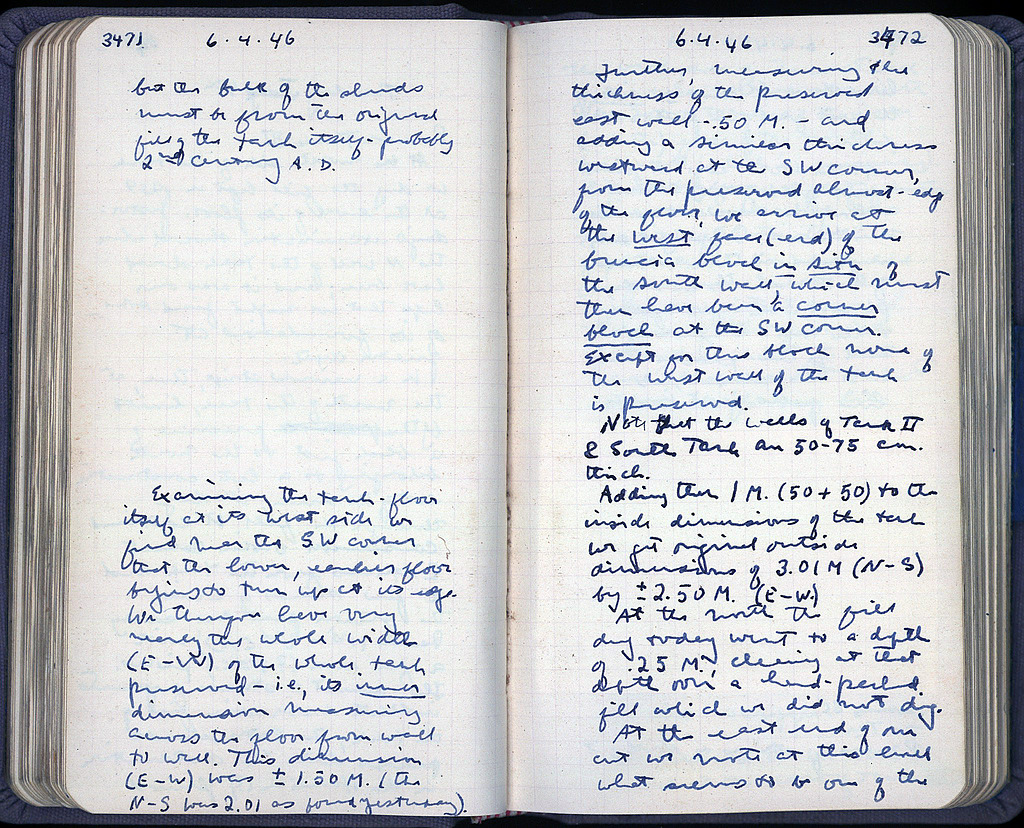 3471 6.4.46
but the bulk of the sherds
must be from the original
fill of the tank itself - probably
2nd century A.D.
Examining the tank-floor
itself at its west side we
find near the SW corner
that the lower, earlier floor
begins to turn up at its edge.
We therefore have very
nearly the whole width
(E-W) of the whole tank
preserved - i.e., its inner
dimension measuring
across the floor from wall
to wall. This dimension
(E-W) was ± 1.50 M. (the
N-S was 2.01 as found yesterday).
6.4.46 3472
Further, measuring the
thickness of the preserved
east wall - .50 M. - and
adding a similar thickness
westward at the SW corner,
from the preserved almost-edge
of the floor, we arrive at
the west face (end) of the
breccia block in situ of
the south wall, which must
then have been a corner
block at the SW corner.
Except for this block none of
the west wall of the tank
is preserved.
Note that the walls of Tank II
& South Tank are 50-75 cm.
thick.
Adding then 1 M. (50 + 50) to the
inside dimensions of the tank
we get original outside
dimensions of 3.01 M (N-S)
by ± 2.50 M. (E-W)
At the north the fill
dug today went to a depth
of .25 M., cleaning at that
depth over a hard-packed
fill which we did not dig.
At the east end of our
cut we note at this level
what seems to be one of the